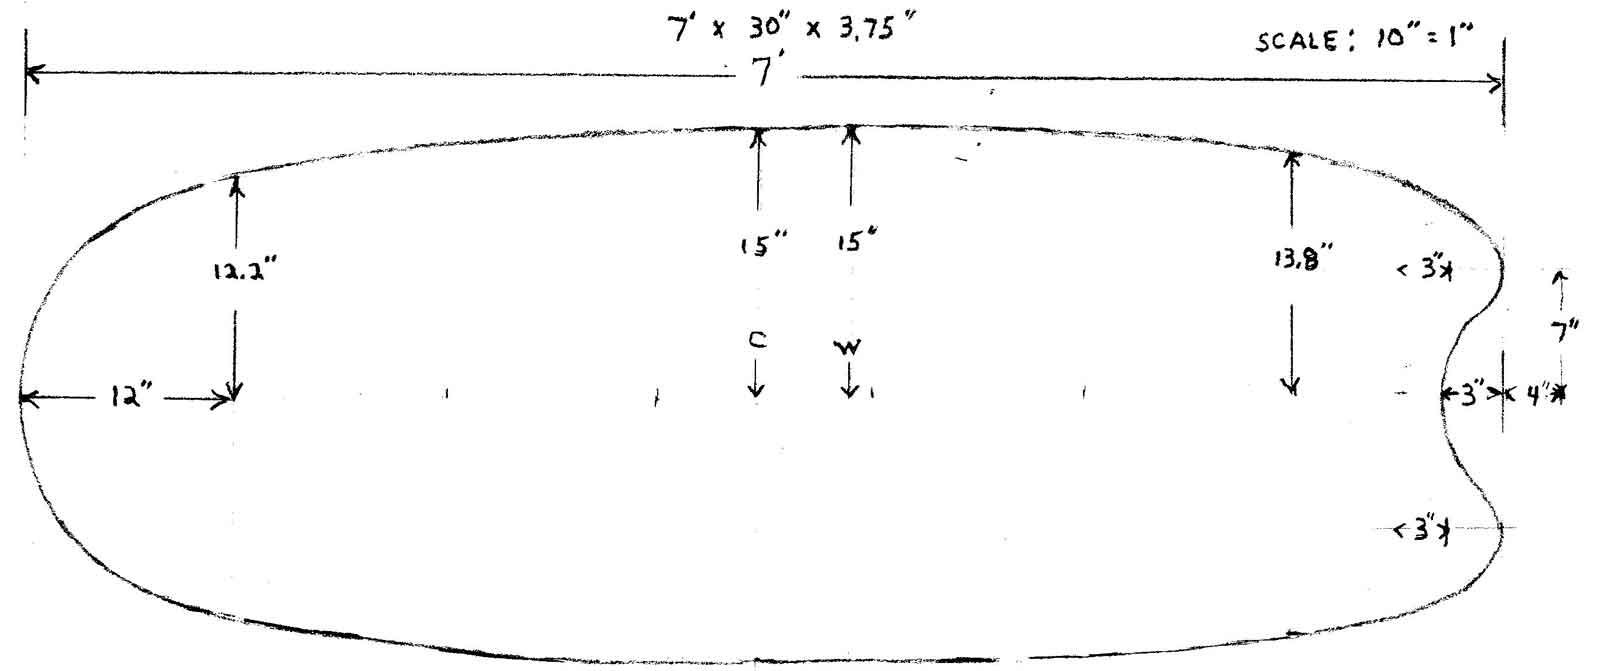 7' x 30" x 3.75"
SCALE: 10" = 1"
7'
15" 15"
12.2"
13.8"
3"
7"
C W
12"
3" 4"
3"